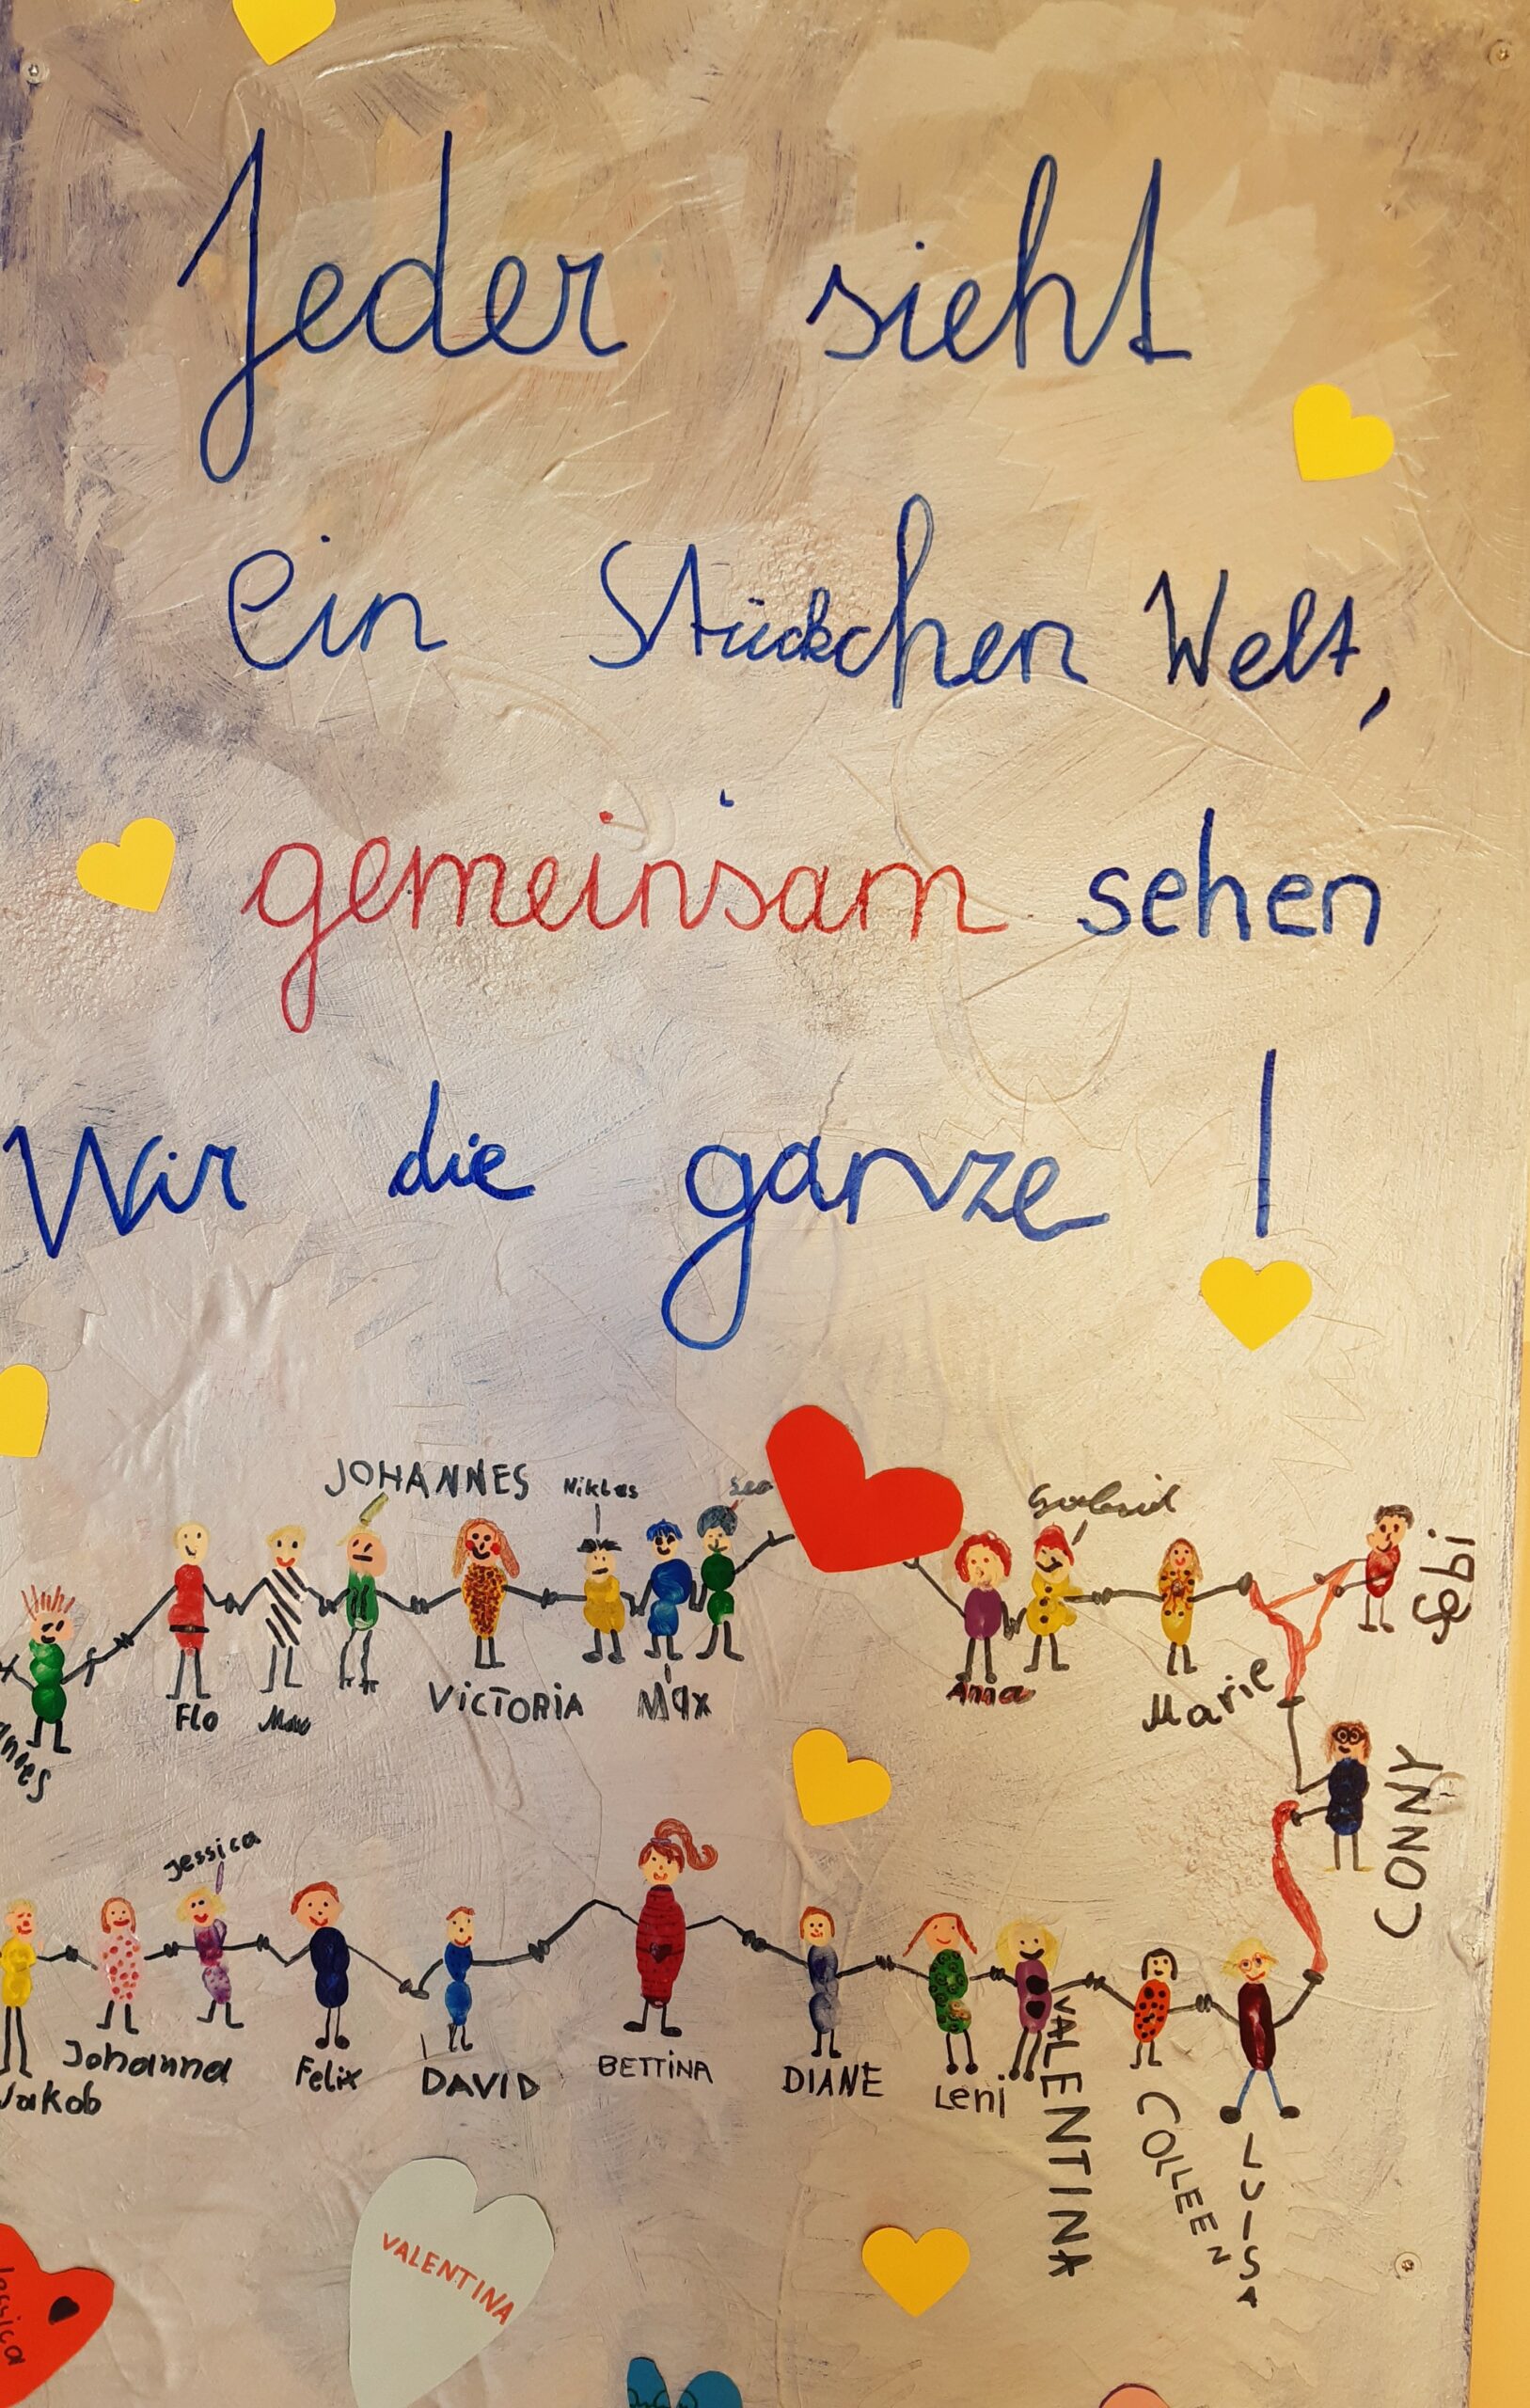 Jeder sieht
ein Stückchen Welt,
gemeinsam sehen
Wir die ganze!
JOHANNES Niklas Leo Gabriel
Sebi
Flo Max VICTORIA Max Anna Marie
CONNY
Jessica
Jakob Johanna Felix DAVID BETTINA DIANE Leni VALENTINA COLLEEN LUISA
VALENTINA
Jessica